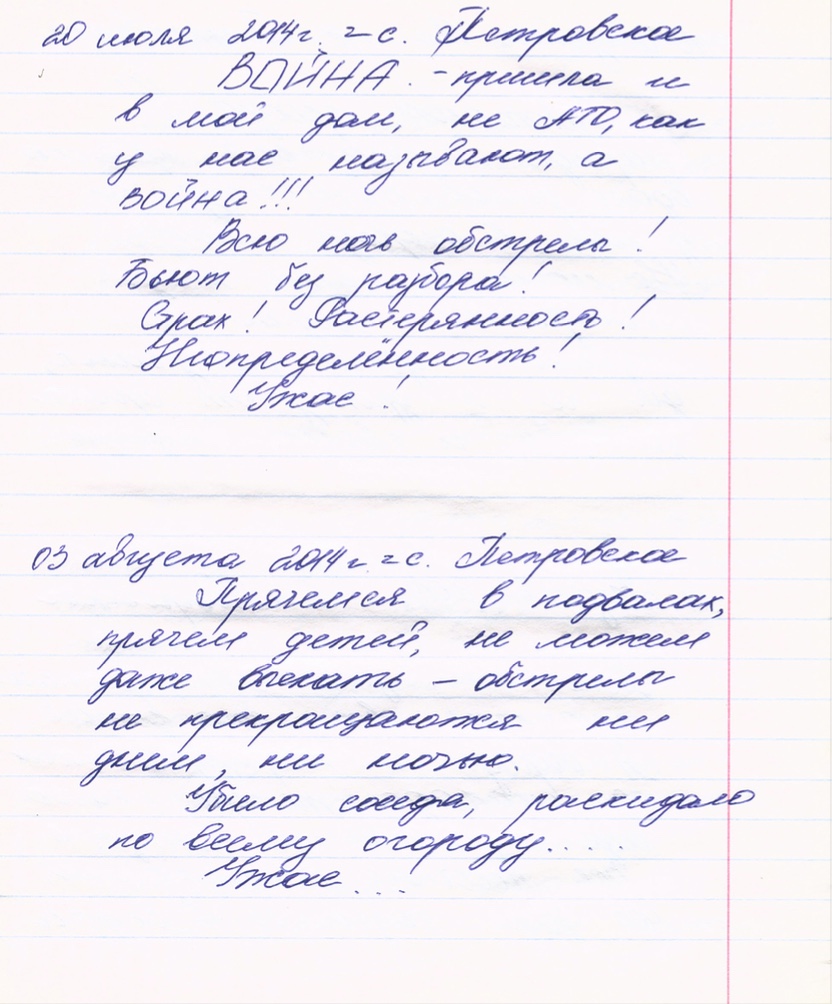 20 июля 2014г. с. Петровское
ВОЙНА. - пришла и
в мой дом, не АТО, как
у нас называют, а
ВОЙНА!!!
Всю ночь обстрелы!
Бьют без разбора!
Страх! Растерянность!
Неопределённость!
Ужас!
03 августа 2014г. с. Петровское
Прячемся в подвалах,
прячем детей, не можем
даже выехать – обстрелы
не прекращаются ни
днём, ни ночью.
Убило соседа, раскидало
по всему огороду....
Ужас...